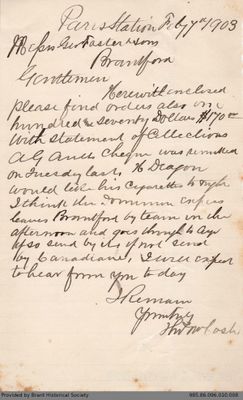 Paris Station Feby 7th 1903
Messrs Geo Foster & Sons
Brantford
Gentlemen
Herewith enclosed
please find orders also one
hundred & seventy Dollars $170 00
with statement of Collections
cheque was remitted
on Tuesday last. Deagon
would like his Cigarettes to night
I think the Dominion express
leaves Brantford by team in the
afternoon and goes through to Ayr
if so send by it if not send
by Canadian, I will expect
to hear from you to day
I Remain
Yours truly
Cash
Provided by Brant Historical Society
985.86.006.010.038